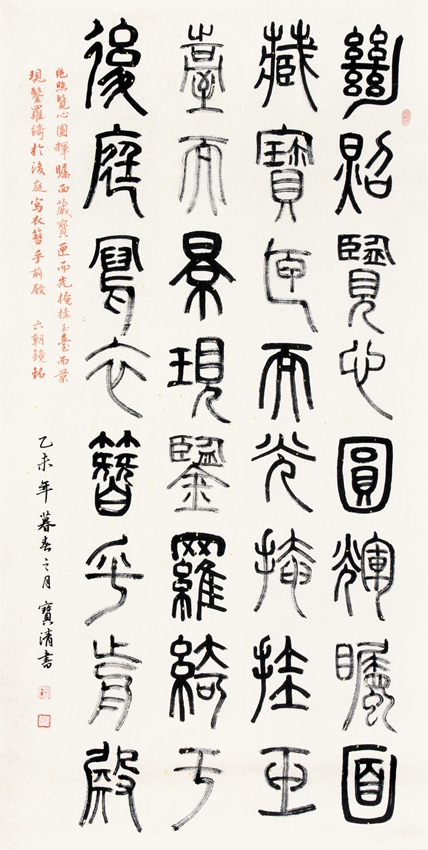 絕照覽心圓輝矚面
藏寶匣而光掩挂玉
臺而景現鑒羅綺于
後庭寫衣簪乎前殿
絶照覽心圓輝矚面藏寶匣而光掩挂玉臺而景
現鑒羅綺於後庭寫衣簪乎前殿 六朝鏡銘
乙未年暮春之月 寶清書